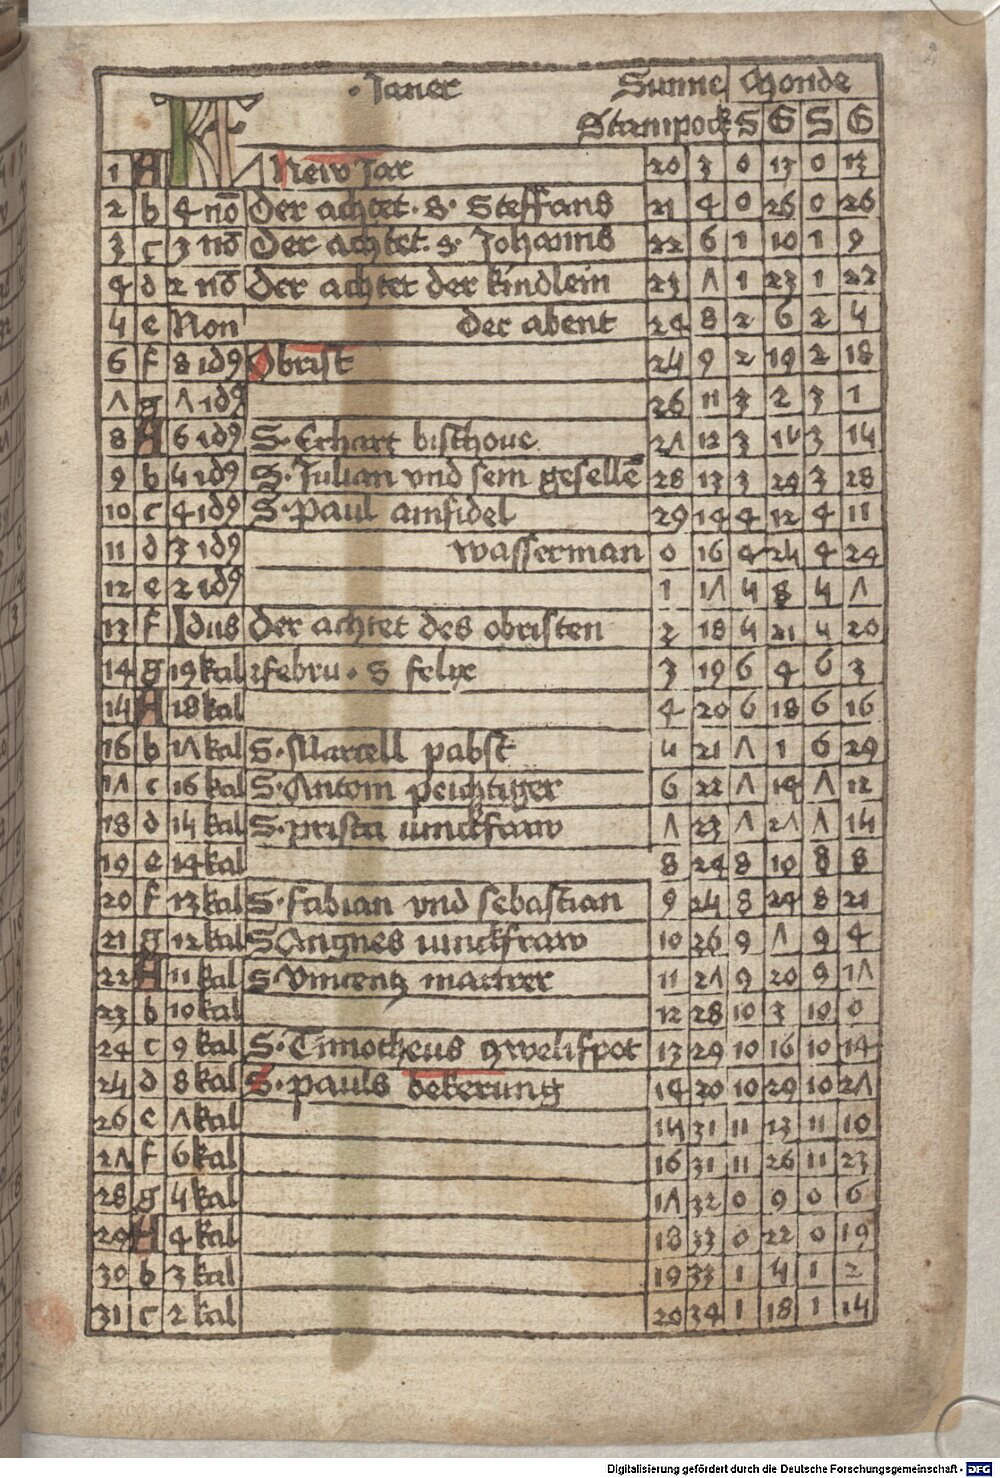 · Janer Sunne Monde
KL Steinpock S G S G
1 A New Jar 20 3 0 13 0 13
2 b 4 nō Der achtet · S · Steffans 21 4 0 26 0 26
3 c 3 nō Der achtet · s · Johanns 22 6 1 10 1 9
4 d 2 nō Der achtet der kindlein 23 Λ 1 23 1 22
5 e Non Der abent 24 8 2 6 2 4
6 f 8 idꝰ Obrist 25 9 2 19 2 18
Λ g Λ idꝰ 26 11 3 2 3 1
8 A 6 idꝰ S · Erhart bischove 2Λ 12 3 15 3 15
9 b 5 idꝰ S · Julian vnd sein geselle̅ 28 13 3 29 3 28
10 c 4 idꝰ S · Paul ainsidel 29 14 4 12 4 11
11 d 3 idꝰ wasserman 0 16 4 25 4 24
12 e 2 idꝰ 1 1Λ 5 8 5 Λ
13 f Idus Der achtet des obristen 2 18 5 21 5 20
14 g 19 kal febru · S felix 3 19 6 4 6 3
15 A 18 kal 4 20 6 18 6 16
16 b 1Λ kal S · Marcell pabst 5 21 Λ 1 6 29
1Λ c 16 kal S · Antoni peichtiger 6 22 Λ 14 Λ 12
18 d 15 kal S · prisca iunckfraw Λ 23 Λ 2Λ Λ 15
19 e 14 kal 8 24 8 10 8 8
20 f 13 kal S · fabian vnd sebastian 9 25 8 24 8 21
21 g 12 kal S Angnes iunckfraw 10 26 9 Λ 9 4
22 A 11 kal S · Vincentz martrer 11 2Λ 9 20 9 1Λ
23 b 10 kal 12 28 10 3 10 0
24 c 9 kal S · Timotheus zwelifpot 13 29 10 16 10 14
25 d 8 kal S · pauls bekerung 14 30 10 29 10 2Λ
26 e Λ kal 15 31 11 13 11 10
2Λ f 6 kal 16 31 11 26 11 23
28 g 5 kal 1Λ 32 0 9 0 6
29 A 4 kal 18 33 0 22 0 19
30 b 3 kal 19 33 1 5 1 2
31 c 2 kal 20 34 1 18 1 15
Digitalisierung gefördert durch die Deutsche Forschungsgemeinschaft - DFG